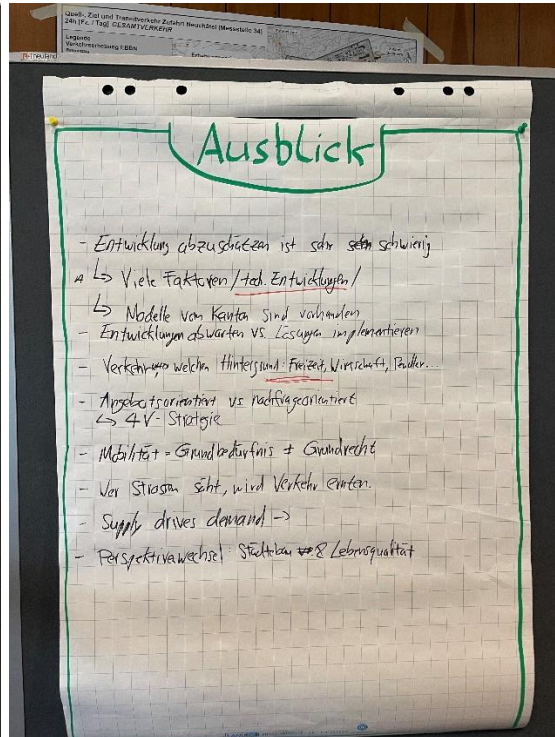 Quell-, Ziel und Transitverkehr Zufahrt Neuchâtel (Messstelle 34)
24h [Fz. / Tag] GESAMTVERKEHR
Legende
Verkehrserhebung
neuland
Ausblick
- Entwicklung abzuschätzen ist sehr schwierig
↳ Viele Faktoren / tech. Entwicklungen /
↳ Modelle von Kanton sind vorhanden
- Entwicklungen abwarten vs. Lösungen implementieren
- Verkehr welchen Hintergrund: Freizeit, Wirtschaft, Pendler...
- Angebotsorientiert vs nachfrageorientiert
↳ 4V-Strategie
- Mobilität = Grundbedürfnis ≠ Grundrecht
- Wer Strassen säht, wird Verkehr ernten.
- Supply drives demand ->
- Perspektivewechsel: Städtebau & Lebensqualität